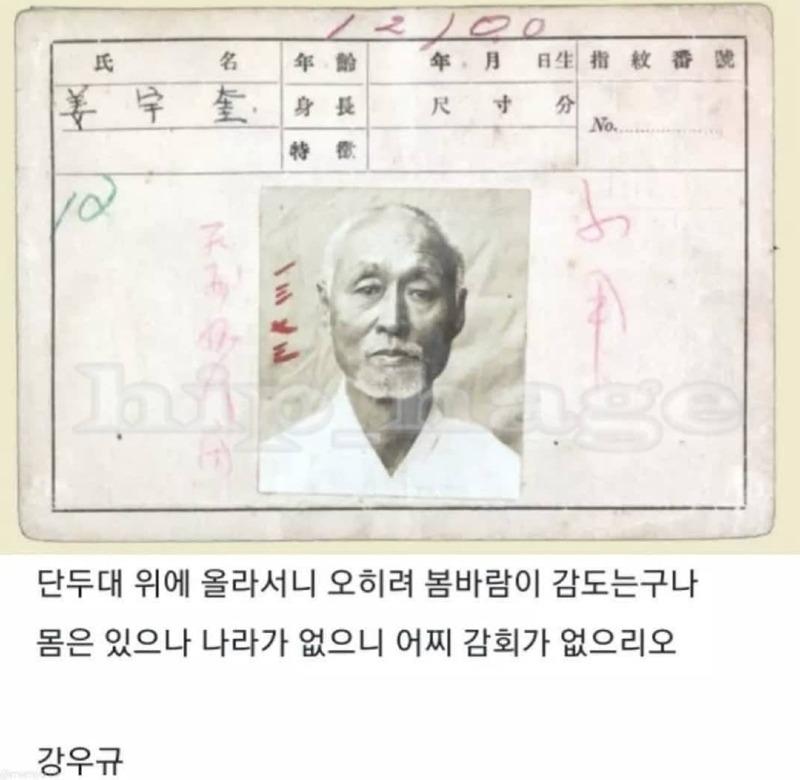 12100
氏 名 年齡 年 月 日生 指紋番號
姜宇奎 身長 尺 寸 分 No.
特徵
12
一三七三
hip_page
단두대 위에 올라서니 오히려 봄바람이 감도는구나
몸은 있으나 나라가 없으니 어찌 감회가 없으리오
강우규